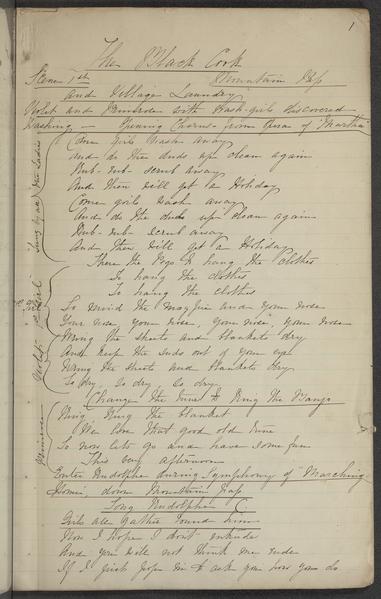 1
The Black Cook
Scene 1st Mountain Pass
and Village Laundry
Violet and Primrose with Wash-girls discovered
Washing — Opening Chorus from Opera of "Martha"
Sung by all the Ladies
Come girls wash away
and do the duds up clean again
Rub-rub-scrub away
And then we'll get a Holiday
Come girls wash away
And do the duds up clean again
Rub-rub scrub away
And then we'll get a Holiday
There the Pegs to hang the clothes
To hang the clothes
To hang the clothes
So mind the magpie and your nose
Your nose, your nose, your nose, your nose
Violet
Wring the sheets and blankets dry
And keep the suds out of your eye
Wring the sheets and blankets dry
So dry, So dry So dry.
Change the tune to Ring the Banjo
Primrose
Wring, Wring the blanket
We love that good old tune
So now lets go and have some fun
This very afternoon
Enter Rudolphe during Symphony of "Marching
Home", down Mountain Pass
Song Rudolphe
Girls all gather round him
Now I hope I don't intrude
And you will not think me rude
If I just pop in to ask you how you do